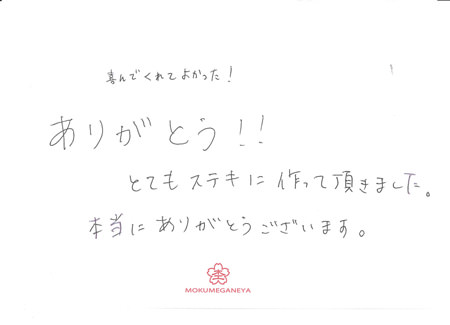 喜んでくれてよかった！
ありがとう！！
とてもステキに作って頂きました。
本当にありがとうございます。
MOKUMEGANEYA